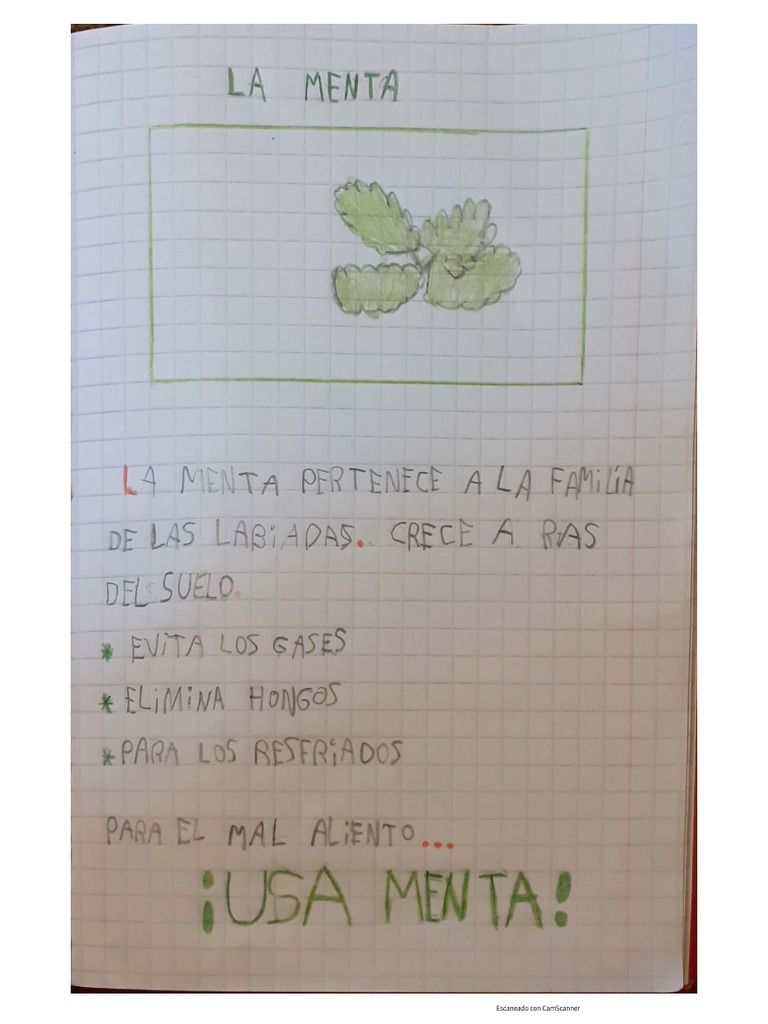 LA MENTA
LA MENTA PERTENECE A LA FAMILIA
DE LAS LABIADAS. CRECE A RAS
DEL SUELO.
* EVITA LOS GASES
* ELIMINA HONGOS
* PARA LOS RESFRIADOS
PARA EL MAL ALIENTO...
¡USA MENTA!
Escaneado con CamScanner